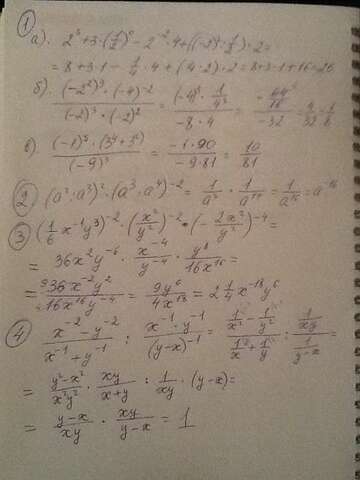 1 а). 2³+3·(1/2)⁰ - 2⁻²·4+((-2)³·1/2)·2=
= 8+3·1 - 1/4·4 + (4·2)·2 = 8+3-1+16=26
б) (-2²)³·(-4)⁻² / (-2)³·(-2²) = (-4)³·1/4² / -8·4 = -64/16 / -32 = 4/32 = 1/8
в). (-1)⁵·(3⁴+3²) / (-9)³ = -1·90 / -9·81 = 10/81
2 (a²·a³)²·(a³·a⁴)⁻² = 1/a² · 1/a¹⁴ = 1/a¹⁶ = a⁻¹⁶
3 (1/6 x⁻¹y³)⁻²·(x²/y²)⁻²·(-2x²/y²)⁻⁴=
= 36x²y⁻⁶ · x⁻⁴/y⁻⁴ · y⁸/16x¹⁶ =
= 36x⁻²y² / 16x¹⁶y⁻⁴ = 9y⁶/4x¹⁸ = 2 1/4 x⁻¹⁸y⁶
4 x⁻²-y⁻² / x⁻¹+y⁻¹ : x⁻¹·y⁻¹ / (y-x)⁻¹ = 1/x² - 1/y² / 1/x + 1/y : 1/xy / 1/y-x =
= y²-x²/x²y² · xy/x+y : 1/xy · (y-x)=
= y-x/xy · xy/y-x = 1